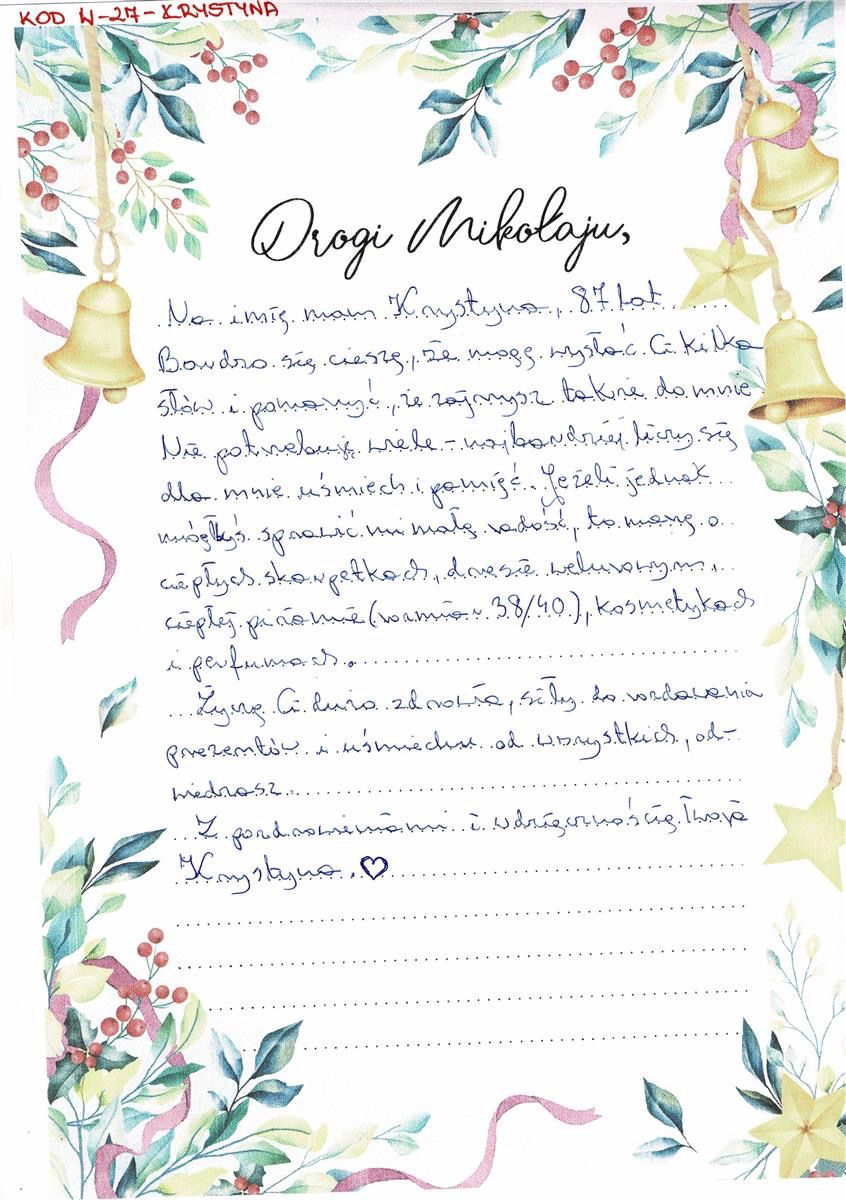 KOD W-27-KRYSTYNA
Drogi Mikołaju,
Na imię mam Krystyna, 87 lat
Bardzo się cieszę, że mogę wysłać Ci kilka
słów i pomarzyć, że zajrzysz także do mnie
Nie potrzebuję wiele - najbardziej liczy się
dla mnie uśmiech i pamięć. Jeżeli jednak
mógłbyś sprawić mi małą radość, to marzę o
ciepłych skarpetkach, dresie welurowym,
ciepłej piżamie (rozmiar 38/40), kosmetykach
i perfumach.
Życzę Ci dużo zdrowia, siły do rozdawania
prezentów i uśmiechu od wszystkich, od-
wiedzasz.
Z pozdrowieniami i wdzięcznością Twoja
Krystyna. ♡